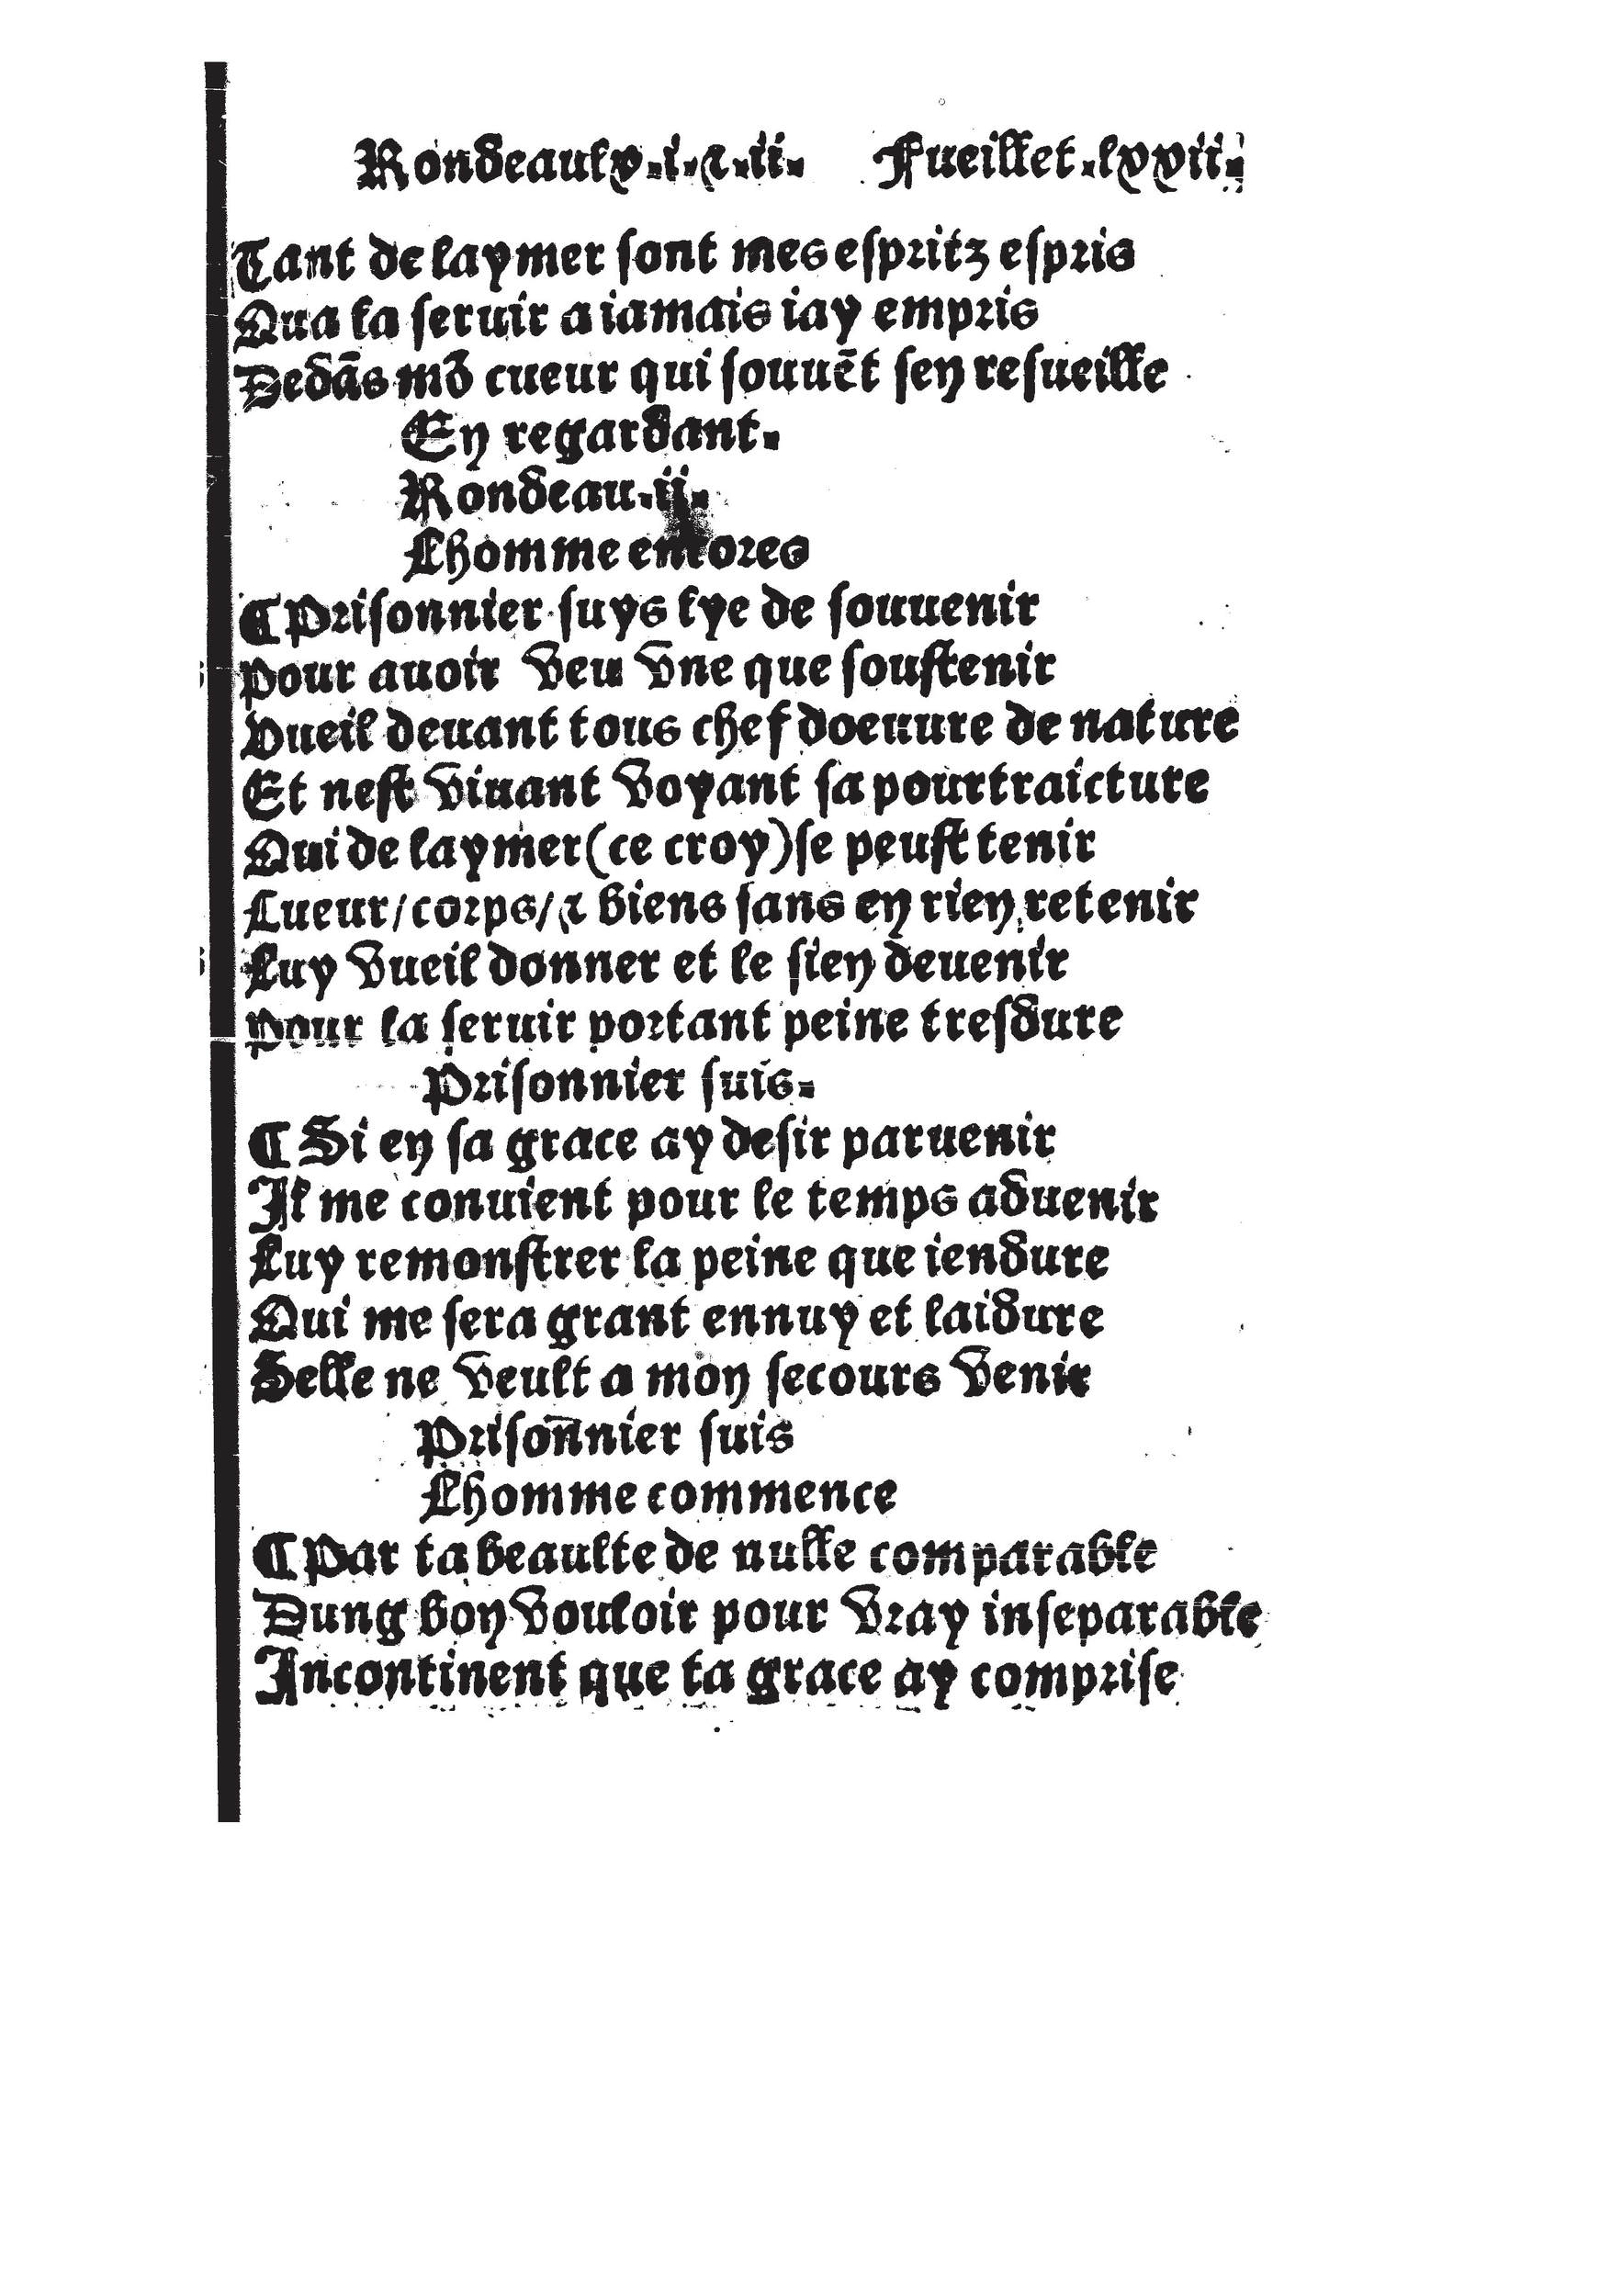 Rondeaulx.i.⁊.ii. Fueillet.lxxii.
Tant de laymer sont mes espritz espris
Qua la seruir a iamais iay empris
Dedãs mõ cueur qui souuẽt sen resueille
En regardant.
Rondeau.ii.
Lhomme encores
¶ Prisonnier suys lye de souuenir
Pour auoir veu vne que soustenir
Vueil deuant tous chef doeuure de nature
Et nest viuant voyant sa pourtraicture
Qui de laymer (ce croy) se peust tenir
Cueur/corps/⁊ biens sans en rien retenir
Luy vueil donner et le sien deuenir
Pour la seruir portant peine tresdure
Prisonnier suis.
¶ Si en sa grace ay desir paruenir
Il me conuient pour le temps aduenir
Luy remonstrer la peine que iendure
Qui me sera grant ennuy et laidure
Selle ne veult a mon secours venir
Prisoñnier suis
Lhomme commence
¶ Par ta beaulte de nulle comparable
Dung bon vouloir pour vray inseparable
Incontinent que ta grace ay comprise